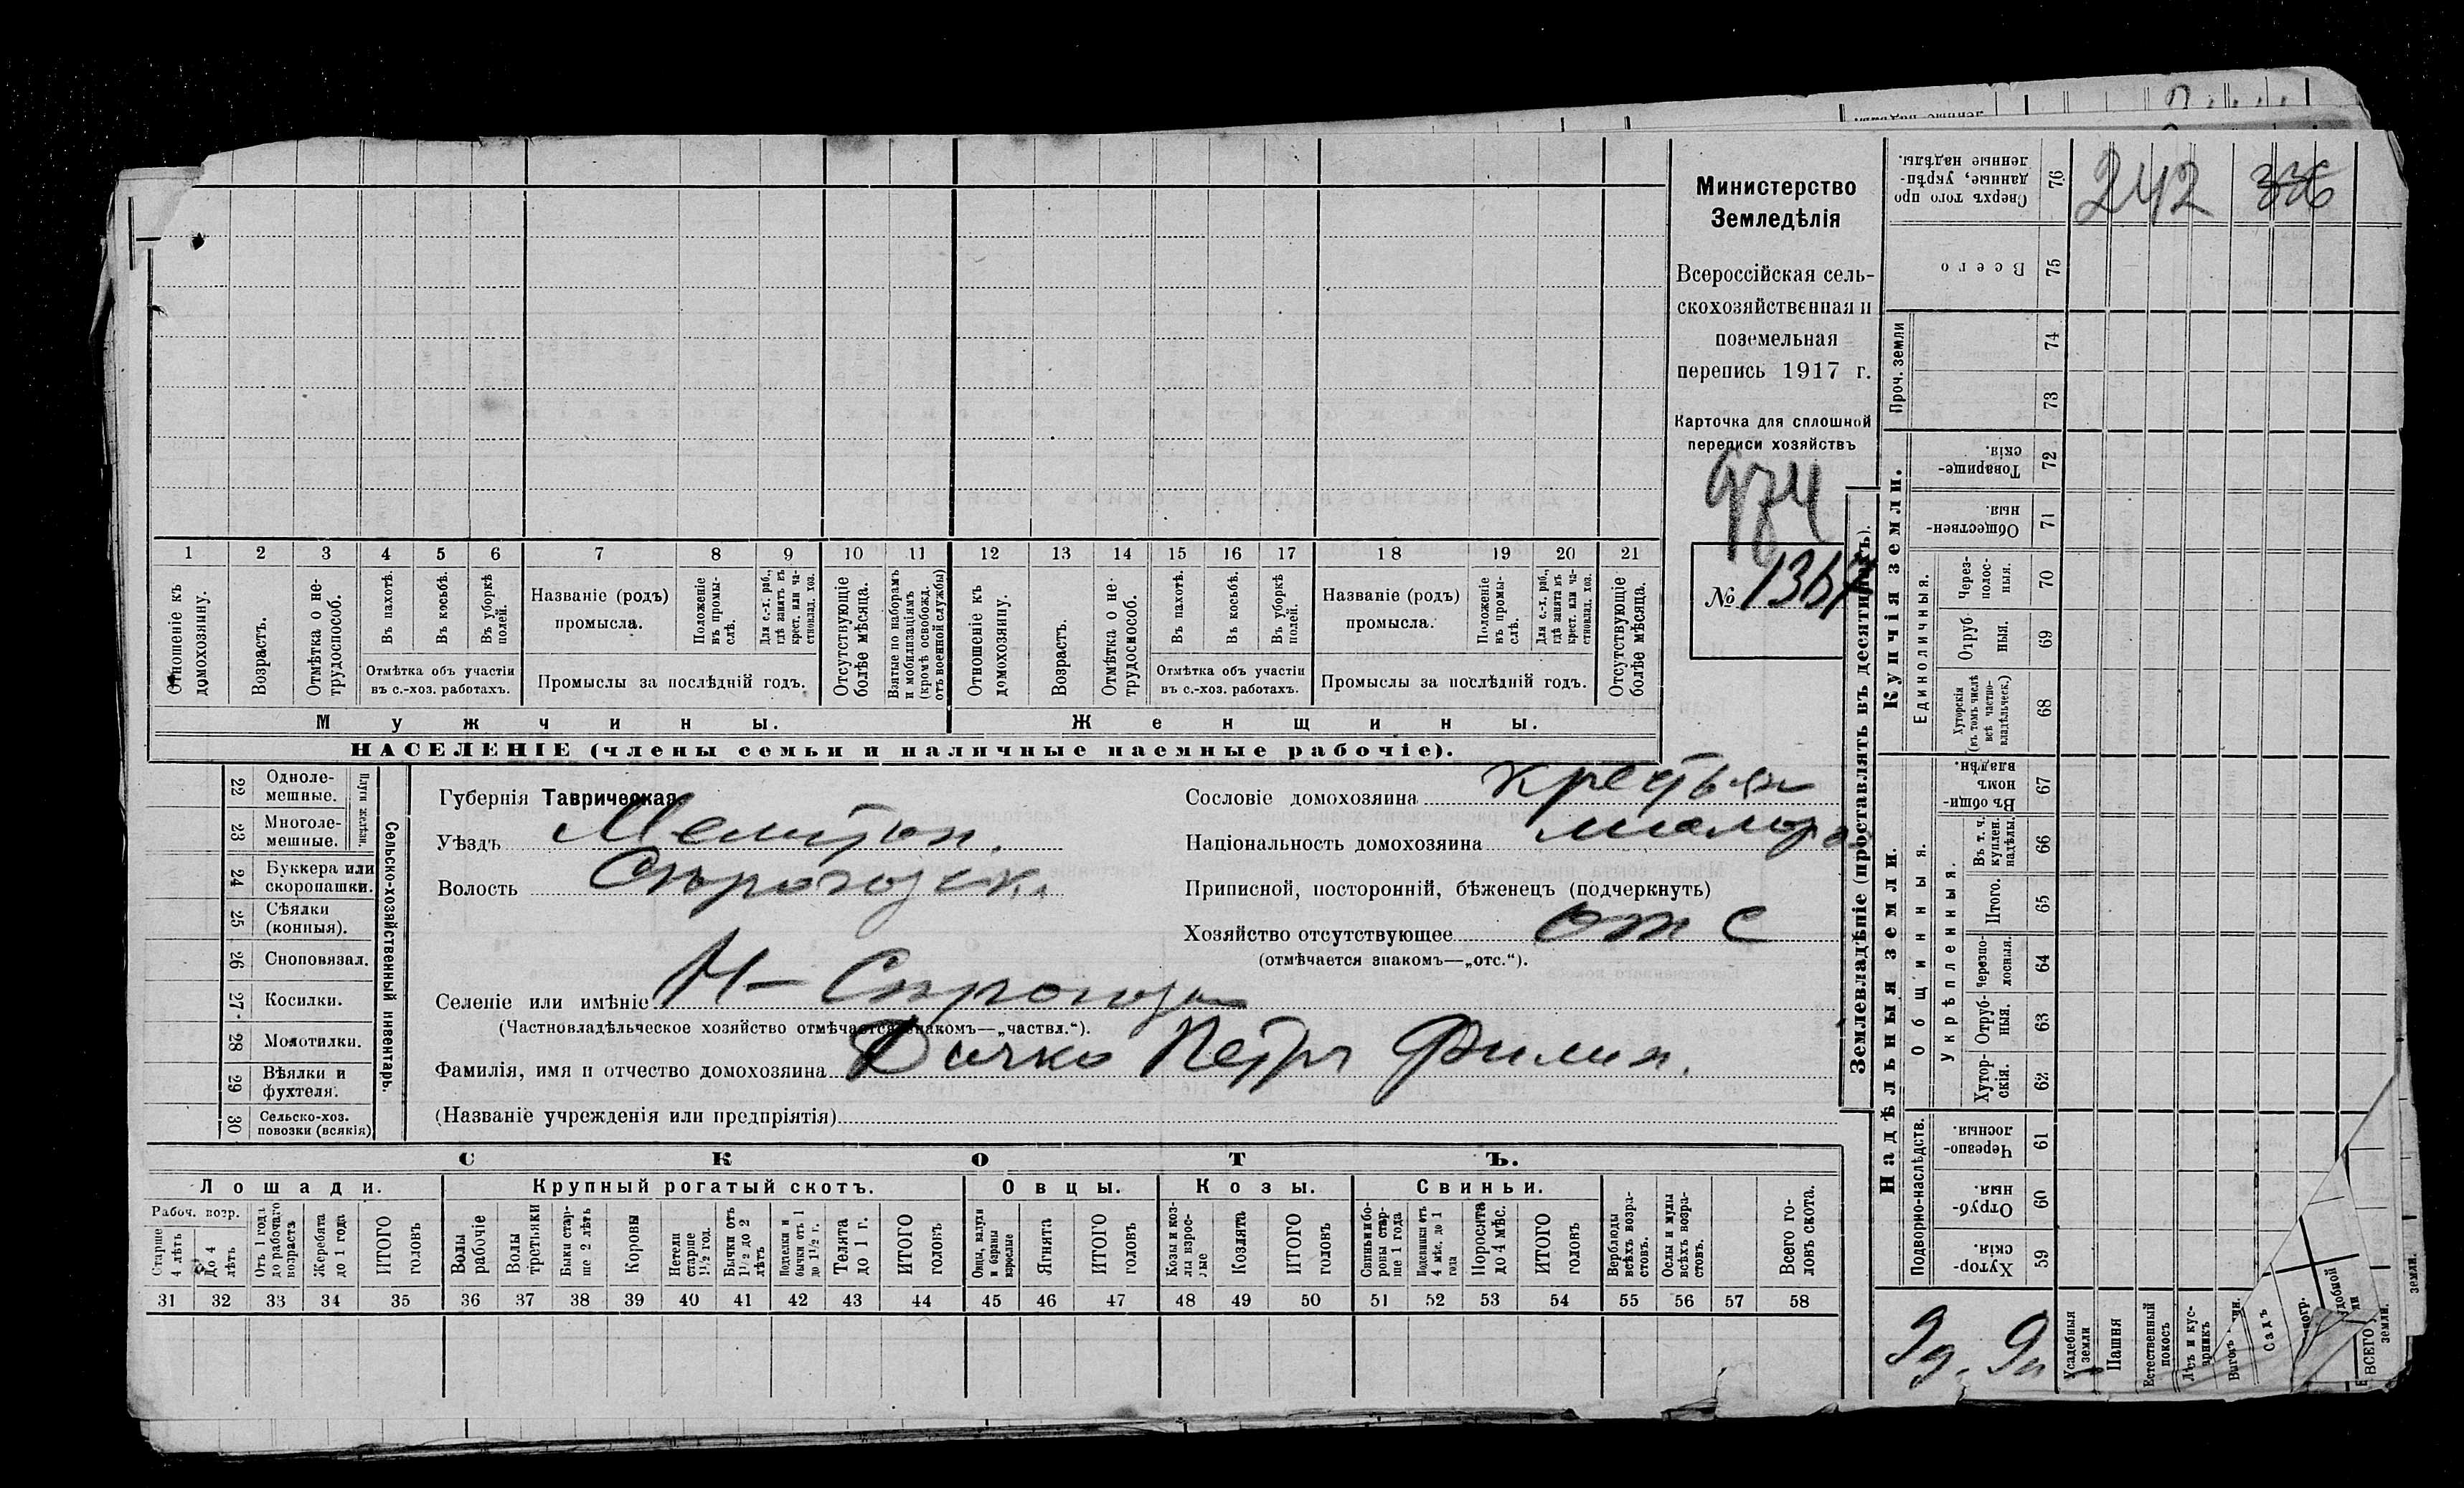 Министерство
Земледѣлія
Всероссійская сель-
скохозяйственная и
поземельная
перепись 1917 г.
Карточка для сплошной
переписи хозяйствъ
974
№ 1367
1 2 3 4 5 6 7 8 9 10 11 12 13 14 15 16 17 18 19 20 21
Отношеніе къ домохозяину.
Возрастъ.
Отмѣтка о не-трудоспособ.
Въ пахотѣ.
Въ косьбѣ.
Въ уборкѣ полей.
Отмѣтка объ участіи
въ с.-хоз. работахъ.
Названіе (родъ)
промысла.
Положеніе въ промы-слѣ.
Для с.-х. раб., гдѣ занятъ въ крест. или ча-стновлад. хоз.
Промыслы за послѣдній годъ.
Отсутствующіе болѣе мѣсяца.
Взятые по наборамъ и мобилизаціямъ (кромѣ освобожд. отъ военной службы)
Отношеніе къ домохозяину.
Возрастъ.
Отмѣтка о не-трудоспособ.
Въ пахотѣ.
Въ косьбѣ.
Въ уборкѣ полей.
Отмѣтка объ участіи
въ с.-хоз. работахъ.
Названіе (родъ)
промысла.
Положеніе въ промы-слѣ.
Для с.-х. раб., гдѣ занята въ крест. или ча-стновлад. хоз.
Промыслы за послѣдній годъ.
Отсутствующіе болѣе мѣсяца.
Мужчины.
Женщины.
НАСЕЛЕНІЕ (члены семьи и наличные наемные рабочіе).
22 Одноле-мешные.
23 Многоле-мешные.
Плуги желѣзн.
24 Буккера или скоропашки.
25 Сѣялки (конныя).
26 Сноповязал.
27 Косилки.
28 Молотилки.
29 Вѣялки и фухтеля.
30 Сельско-хоз. повозки (всякія)
Сельско-хозяйственный инвентарь.
Губернія Таврическая
Уѣздъ Мелитоп.
Волость Сѣрогозск.
Селеніе или имѣніе Н-Сѣрогозы
(Частновладѣльческое хозяйство отмѣчается знакомъ—„частвл.“).
Фамилія, имя и отчество домохозяина Дичко Петръ Филип.
(Названіе учрежденія или предпріятія)
Сословіе домохозяина крестьян
Національность домохозяина малоро
Приписной, посторонній, бѣженецъ (подчеркнуть)
Хозяйство отсутствующее отс
(отмѣчается знакомъ—„отс.“).
СКОТЪ.
Лошади.
Крупный рогатый скотъ.
Овцы.
Козы.
Свиньи.
Рабоч. возр.
Старше 4 лѣтъ
До 4 лѣтъ
Отъ 1 года до рабочаго возраста
Жеребята до 1 года
ИТОГО головъ
Волы рабочіе
Волы третьяки
Быки стар-ше 2 лѣтъ
Коровы
Нетели старше 1½ год.
Бычки отъ 1½ до 2 лѣтъ
Подтелки и бычки отъ 1 до 1½ г.
Телята до 1 г.
ИТОГО головъ
Овцы, валухи и бараны взрослые
Ягнята
ИТОГО головъ
Козы и коз-лы взрос-лые
Козлята
ИТОГО головъ
Свиньи и бо-ровы стар-ше 1 года
Подсвинки отъ 4 мѣс. до 1 года
Поросята до 4 мѣс.
ИТОГО головъ
Верблюды всѣхъ возра-стовъ.
Ослы и мулы всѣхъ возра-стовъ.
Всего го-ловъ скота.
31 32 33 34 35 36 37 38 39 40 41 42 43 44 45 46 47 48 49 50 51 52 53 54 55 56 57 58
Землевладѣніе (проставлять въ десятинахъ).
Купчія земли.
Надѣльныя земли.
Проч. земли
Единоличныя.
Общинныя.
Укрѣпленныя.
Подворно-наслѣдств.
Сверхъ того про данные, укрѣп-ленные надѣлы. 76
242 336
Всего 75
74
73
Товарище-скія. 72
Обществен-ныя. 71
Через-полос-ныя. 70
Отруб-ныя. 69
Хуторскія (въ томъ числѣ всѣ частно-владѣльческ.) 68
Въ общи-номъ владѣн. 67
Въ т. ч. куплен. надѣлы. 66
Итого. 65
Черезпо-лосныя. 64
Отруб-ныя. 63
Хутор-скія. 62
Черезпо-лосныя. 61
Отруб-ныя. 60
Хутор-скія. 59
Усадебныя земли
Пашня
Естественный покосъ
Лѣсъ и кус-тарникъ
Садъ
ВСЕГО земли.